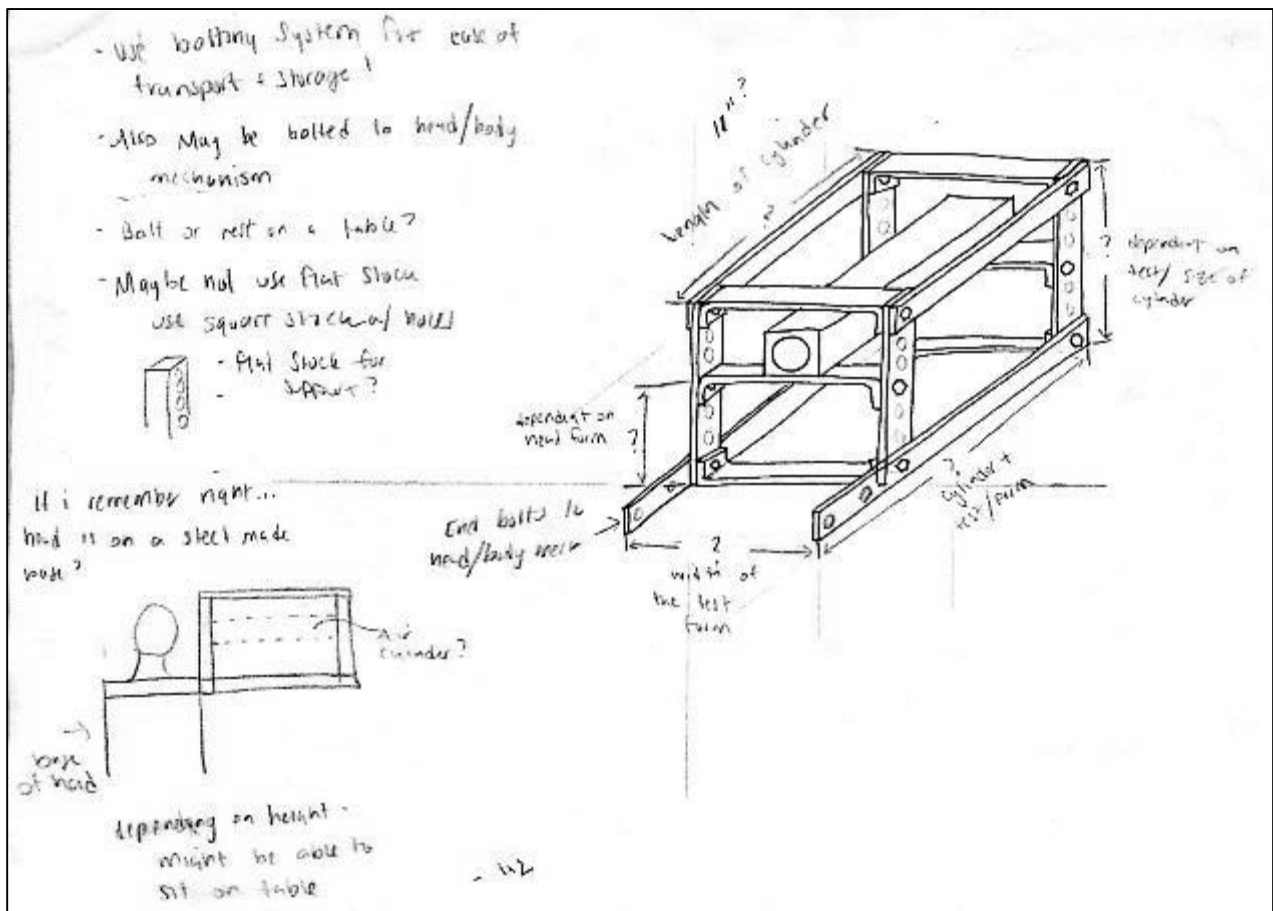 - Use bolting system for ease of
transport + storage!
- Also may be bolted to head/body
mechanism
- Bolt or rest on a table?
- Maybe not use flat stock
use square stock w/ holes
- flat stock for
- support?
If i remember right...
head is on a steel made
base?
Air
cylinder?
base
of head
depending on height -
might be able to
sit on table
11"?
Length of cylinder
?
? dependent on
test/size of
cylinder
dependent on
head form
?
End bolts to
head/body mech
?
width of
the test
form
?
cylinder +
test/form